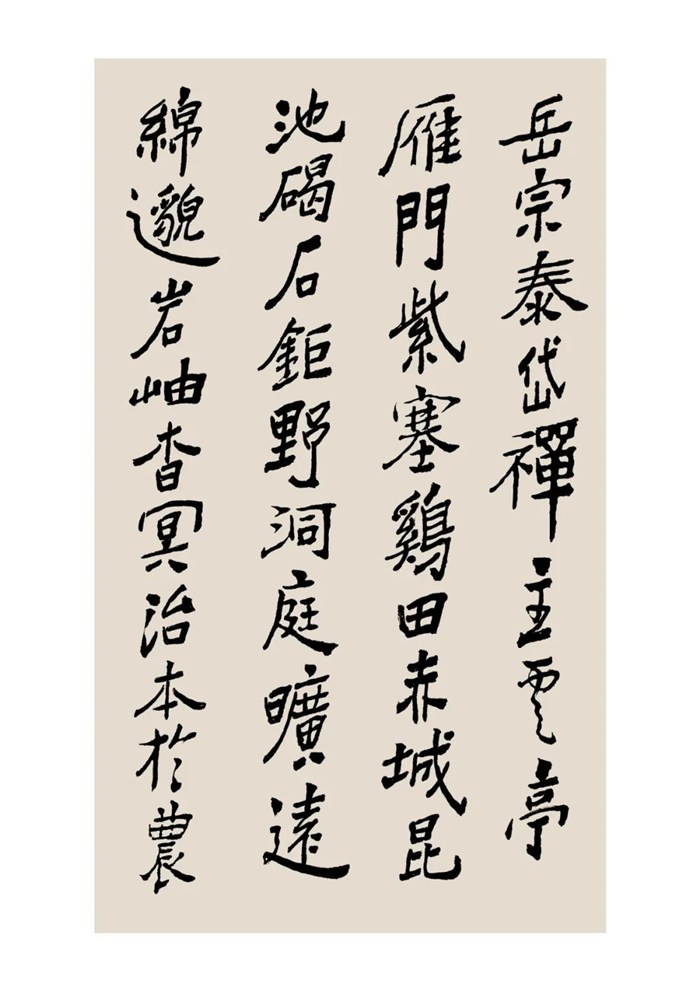 岳宗泰岱禪主雲亭
雁門紫塞鷄田赤城昆
池碣石鉅野洞庭曠遠
綿邈岩岫杳冥治本於農